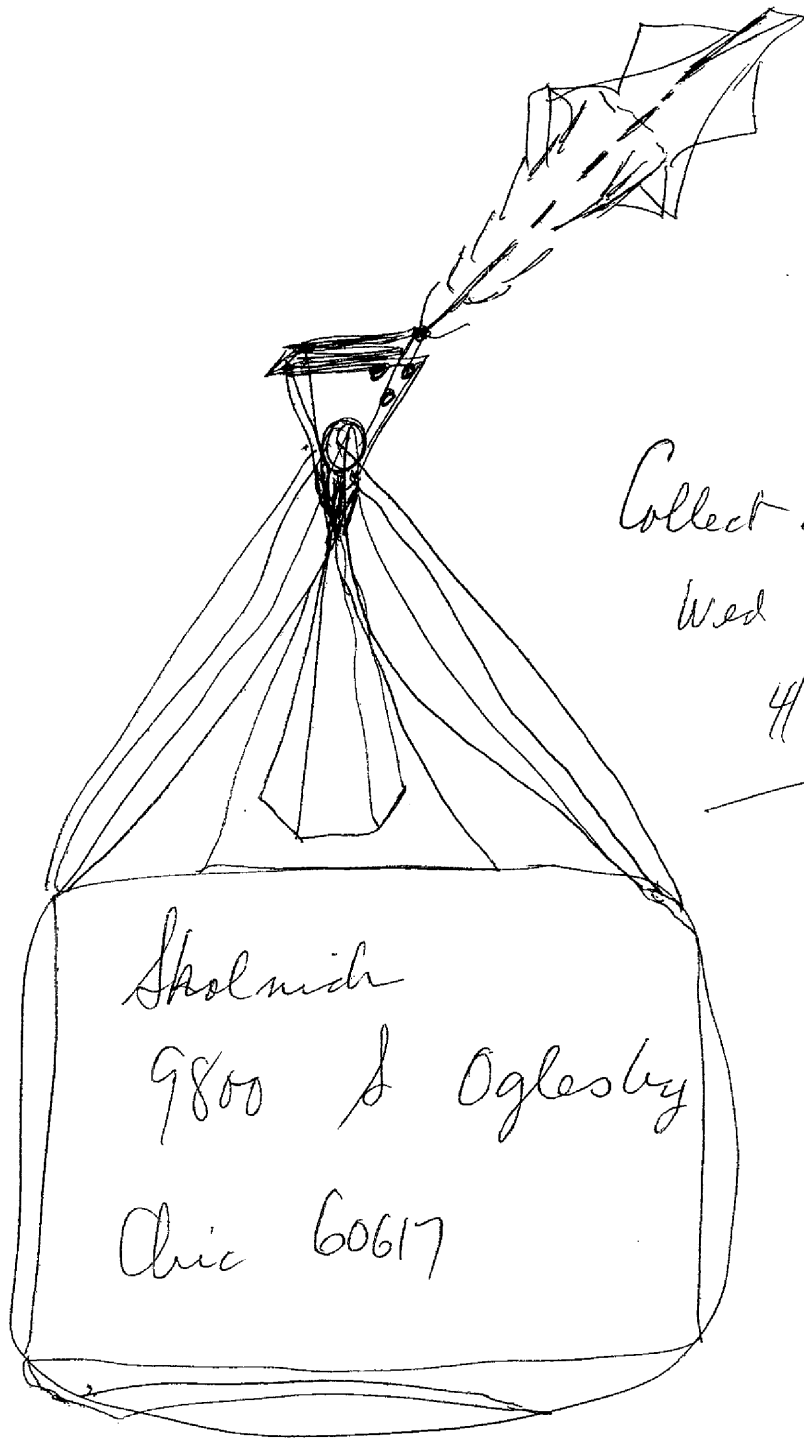 Collect
Wed
Skolnick
9800 S Oglesby
Chic 60617